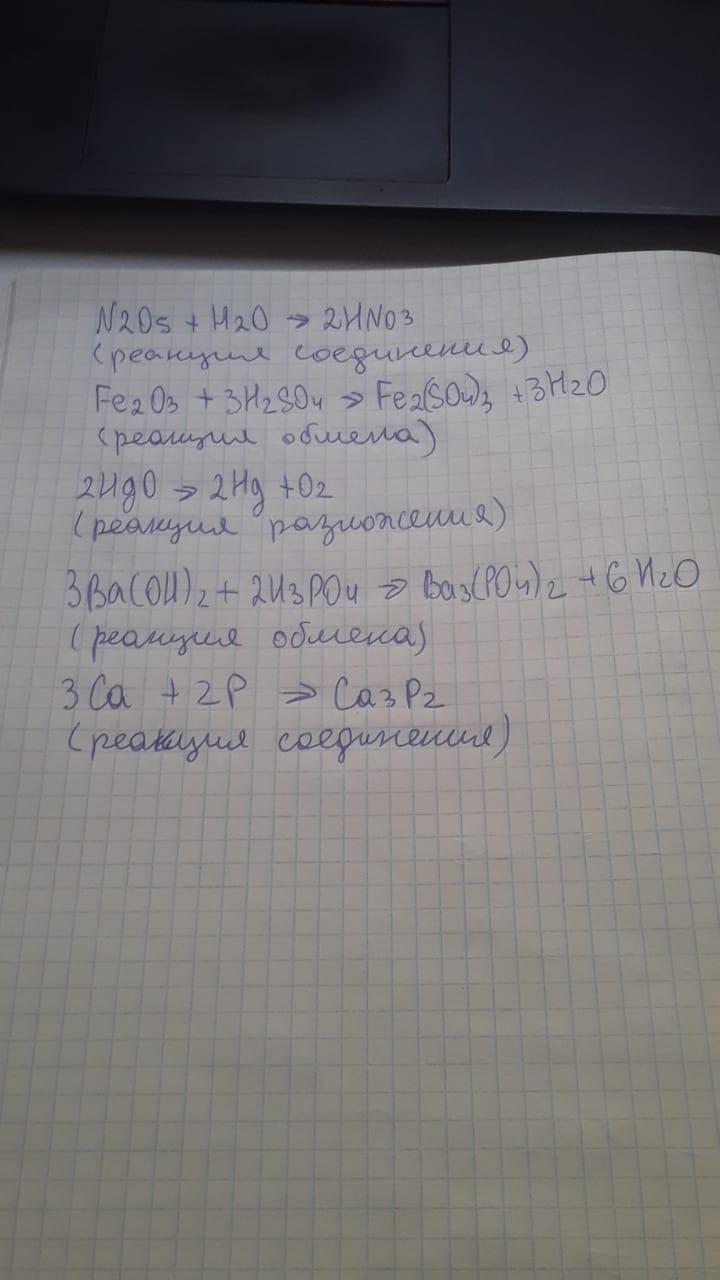 N2O5 + H2O → 2HNO3
(реакция соединения)
Fe2O3 + 3H2SO4 → Fe2(SO4)3 + 3H2O
(реакция обмена)
2HgO → 2Hg + O2
(реакция разложения)
3Ba(OH)2 + 2H3PO4 → Ba3(PO4)2 + 6H2O
(реакция обмена)
3Ca + 2P → Ca3P2
(реакция соединения)